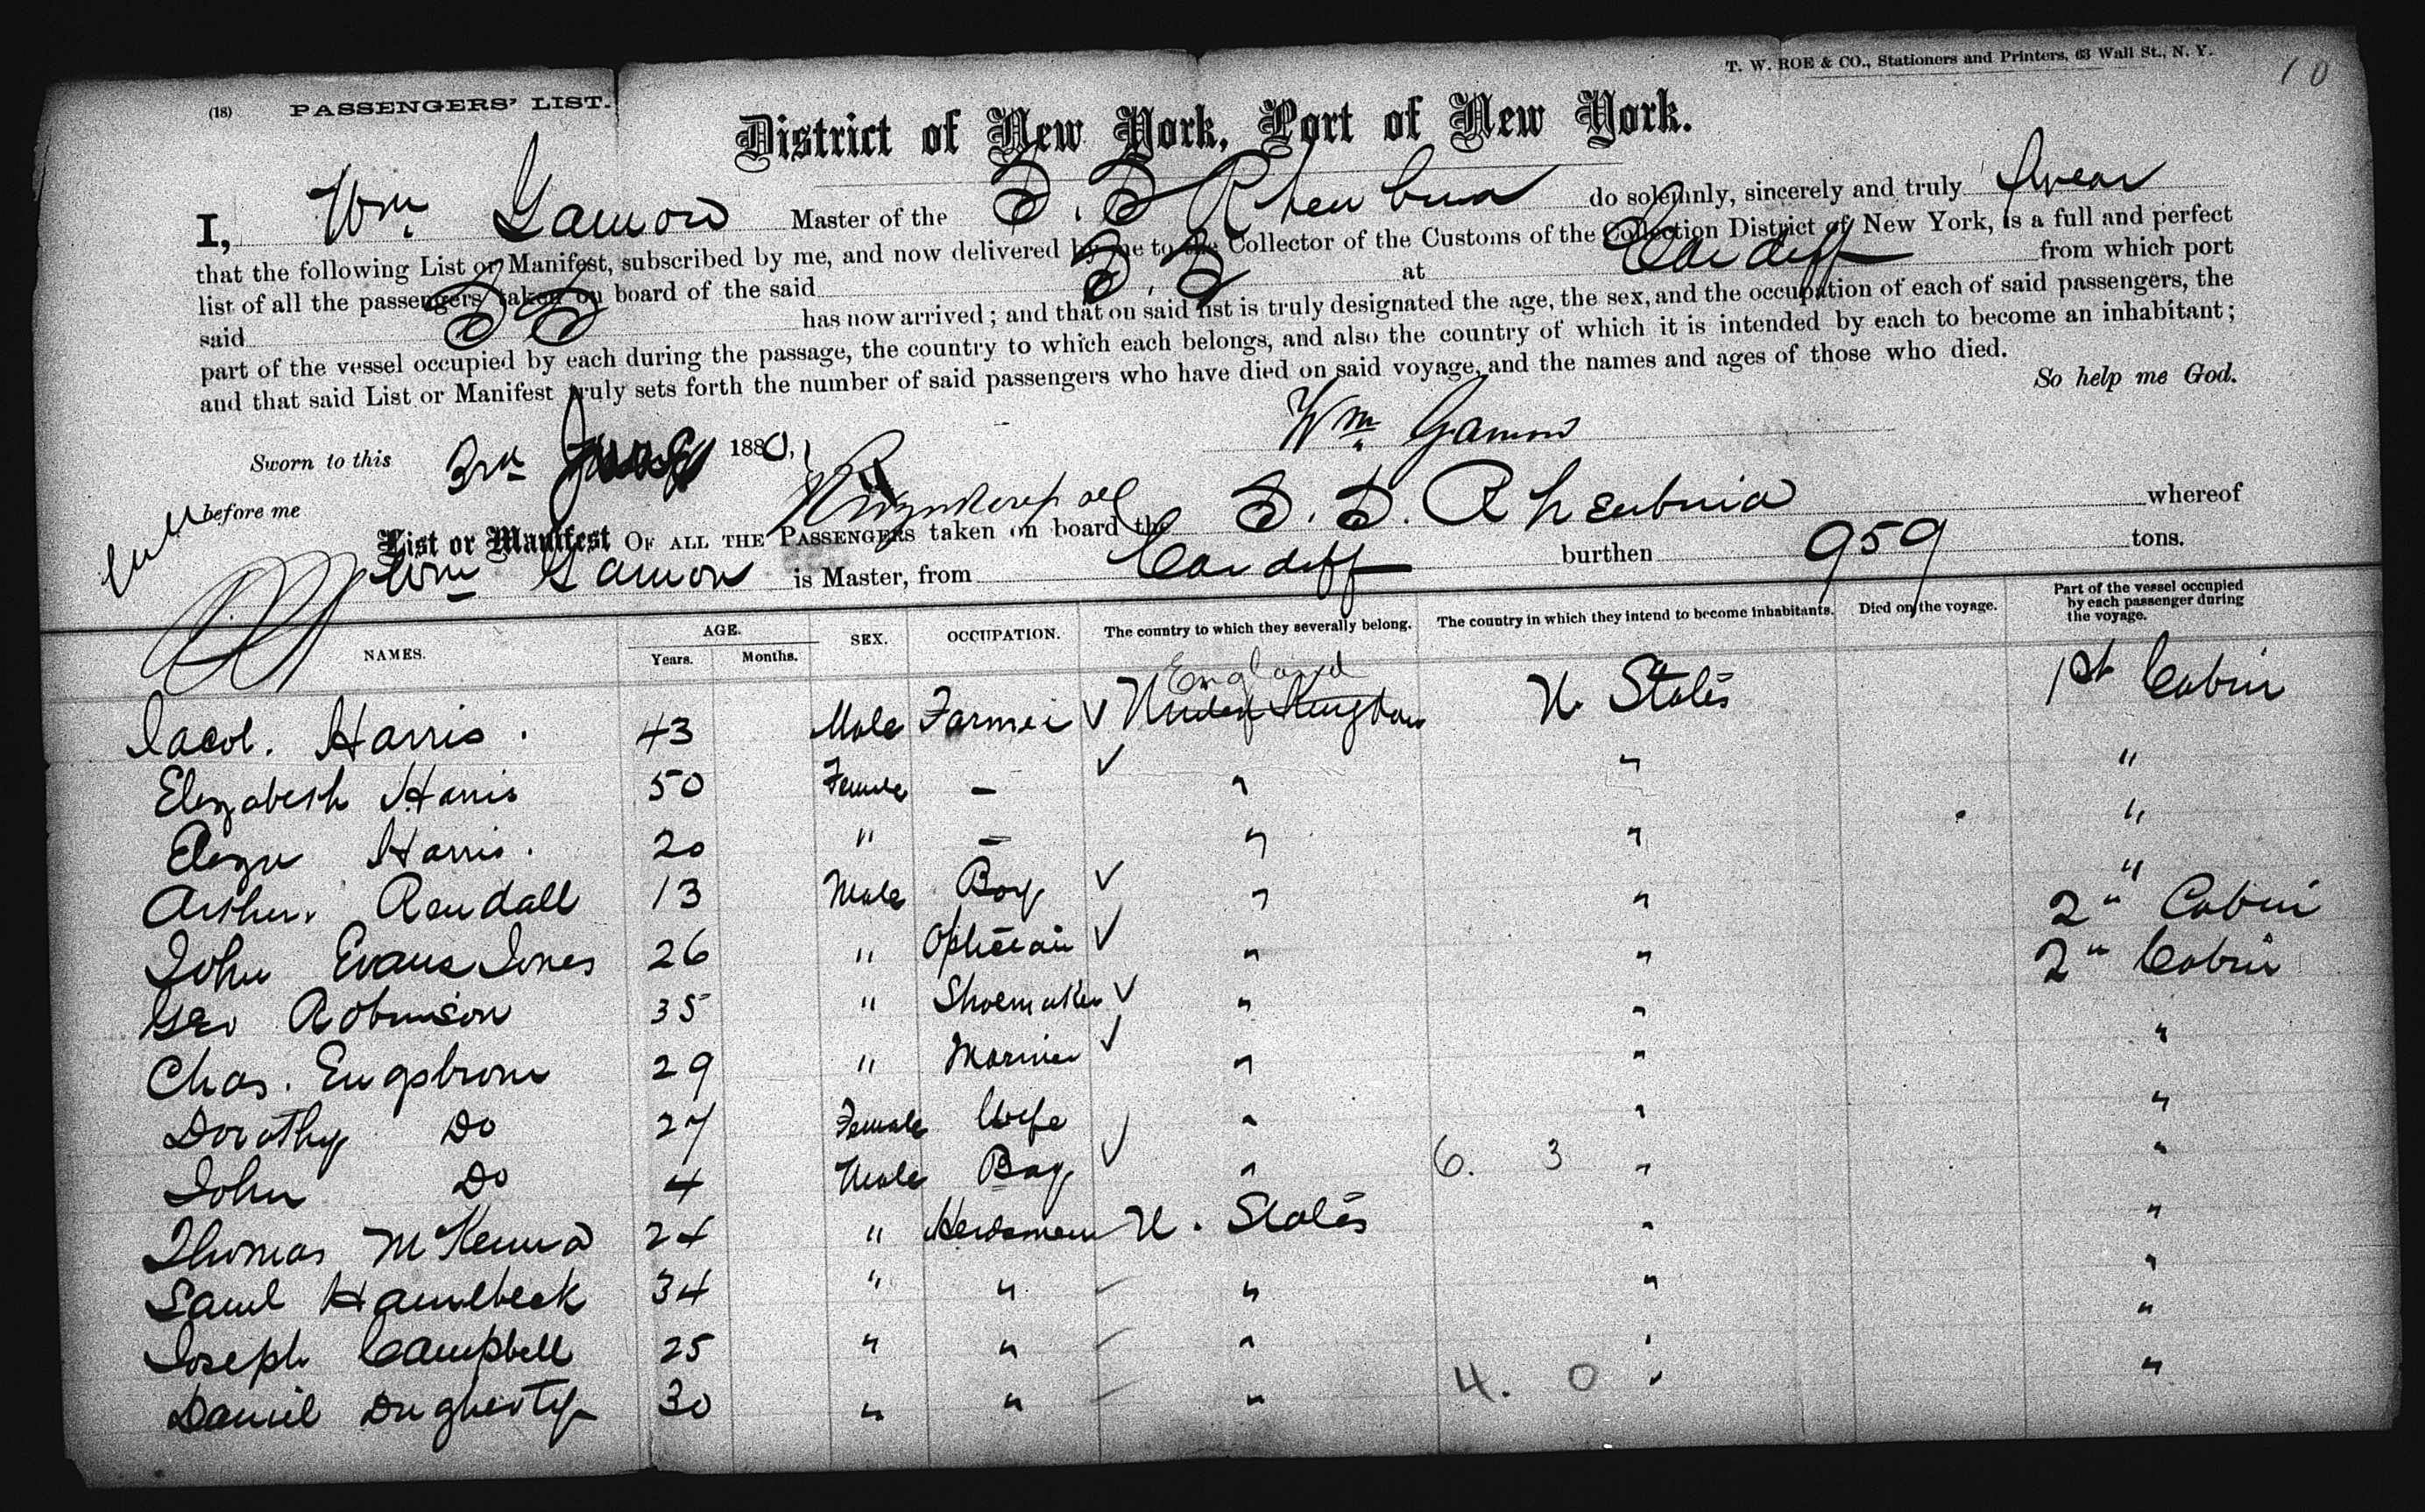 T. W. ROE & CO., Stationers and Printers, 63 Wall St., N. Y.
10
(18) PASSENGERS' LIST.
District of New York, Port of New York.
I, Wm Gamon Master of the S.S Rheubina do solemnly, sincerely and truly Swear
that the following List or Manifest, subscribed by me, and now delivered by me to the Collector of the Customs of the Collection District of New York, is a full and perfect
list of all the passengers taken on board of the said S.S at Cardiff from which port
said SS has now arrived; and that on said list is truly designated the age, the sex, and the occupation of each of said passengers, the
part of the vessel occupied by each during the passage, the country to which each belongs, and also the country of which it is intended by each to become an inhabitant;
and that said List or Manifest truly sets forth the number of said passengers who have died on said voyage, and the names and ages of those who died.
So help me God.
Wm Gamon
Sworn to this 3rd 1880,
before me
List or Manifest OF ALL THE PASSENGERS taken on board the S.S. Rheubina whereof
Wm Gamon is Master, from Cardiff burthen 959 tons.
NAMES. AGE. Years. Months. SEX. OCCUPATION. The country to which they severally belong. The country in which they intend to become inhabitants. Died on the voyage. Part of the vessel occupied by each passenger during the voyage.
England
Jacob. Harris. 43 Male Farmer √ United Kingdom U. States 1st Cabin
Elizabeth Harris 50 Female - √ " " "
Eliza Harris. 20 " - " " "
Arthur. Randall 13 Male Boy √ " " "
John Evans Jones 26 " Optician √ " " 2" Cabin
Geo Robinson 35 " Shoemaker √ " " 2" Cabin
Chas. Engstrom 29 " Mariner √ " " "
Dorothy Do 27 Female Wife " " "
John Do 4 Male Boy √ " 6. 3 " "
Thomas McKenna 24 " Herdsmen U. States " "
Saml Hamelbeck 34 " " " " "
Joseph Campbell 25 " " " " "
Daniel Dugherty 30 " " " 4. 0 " "